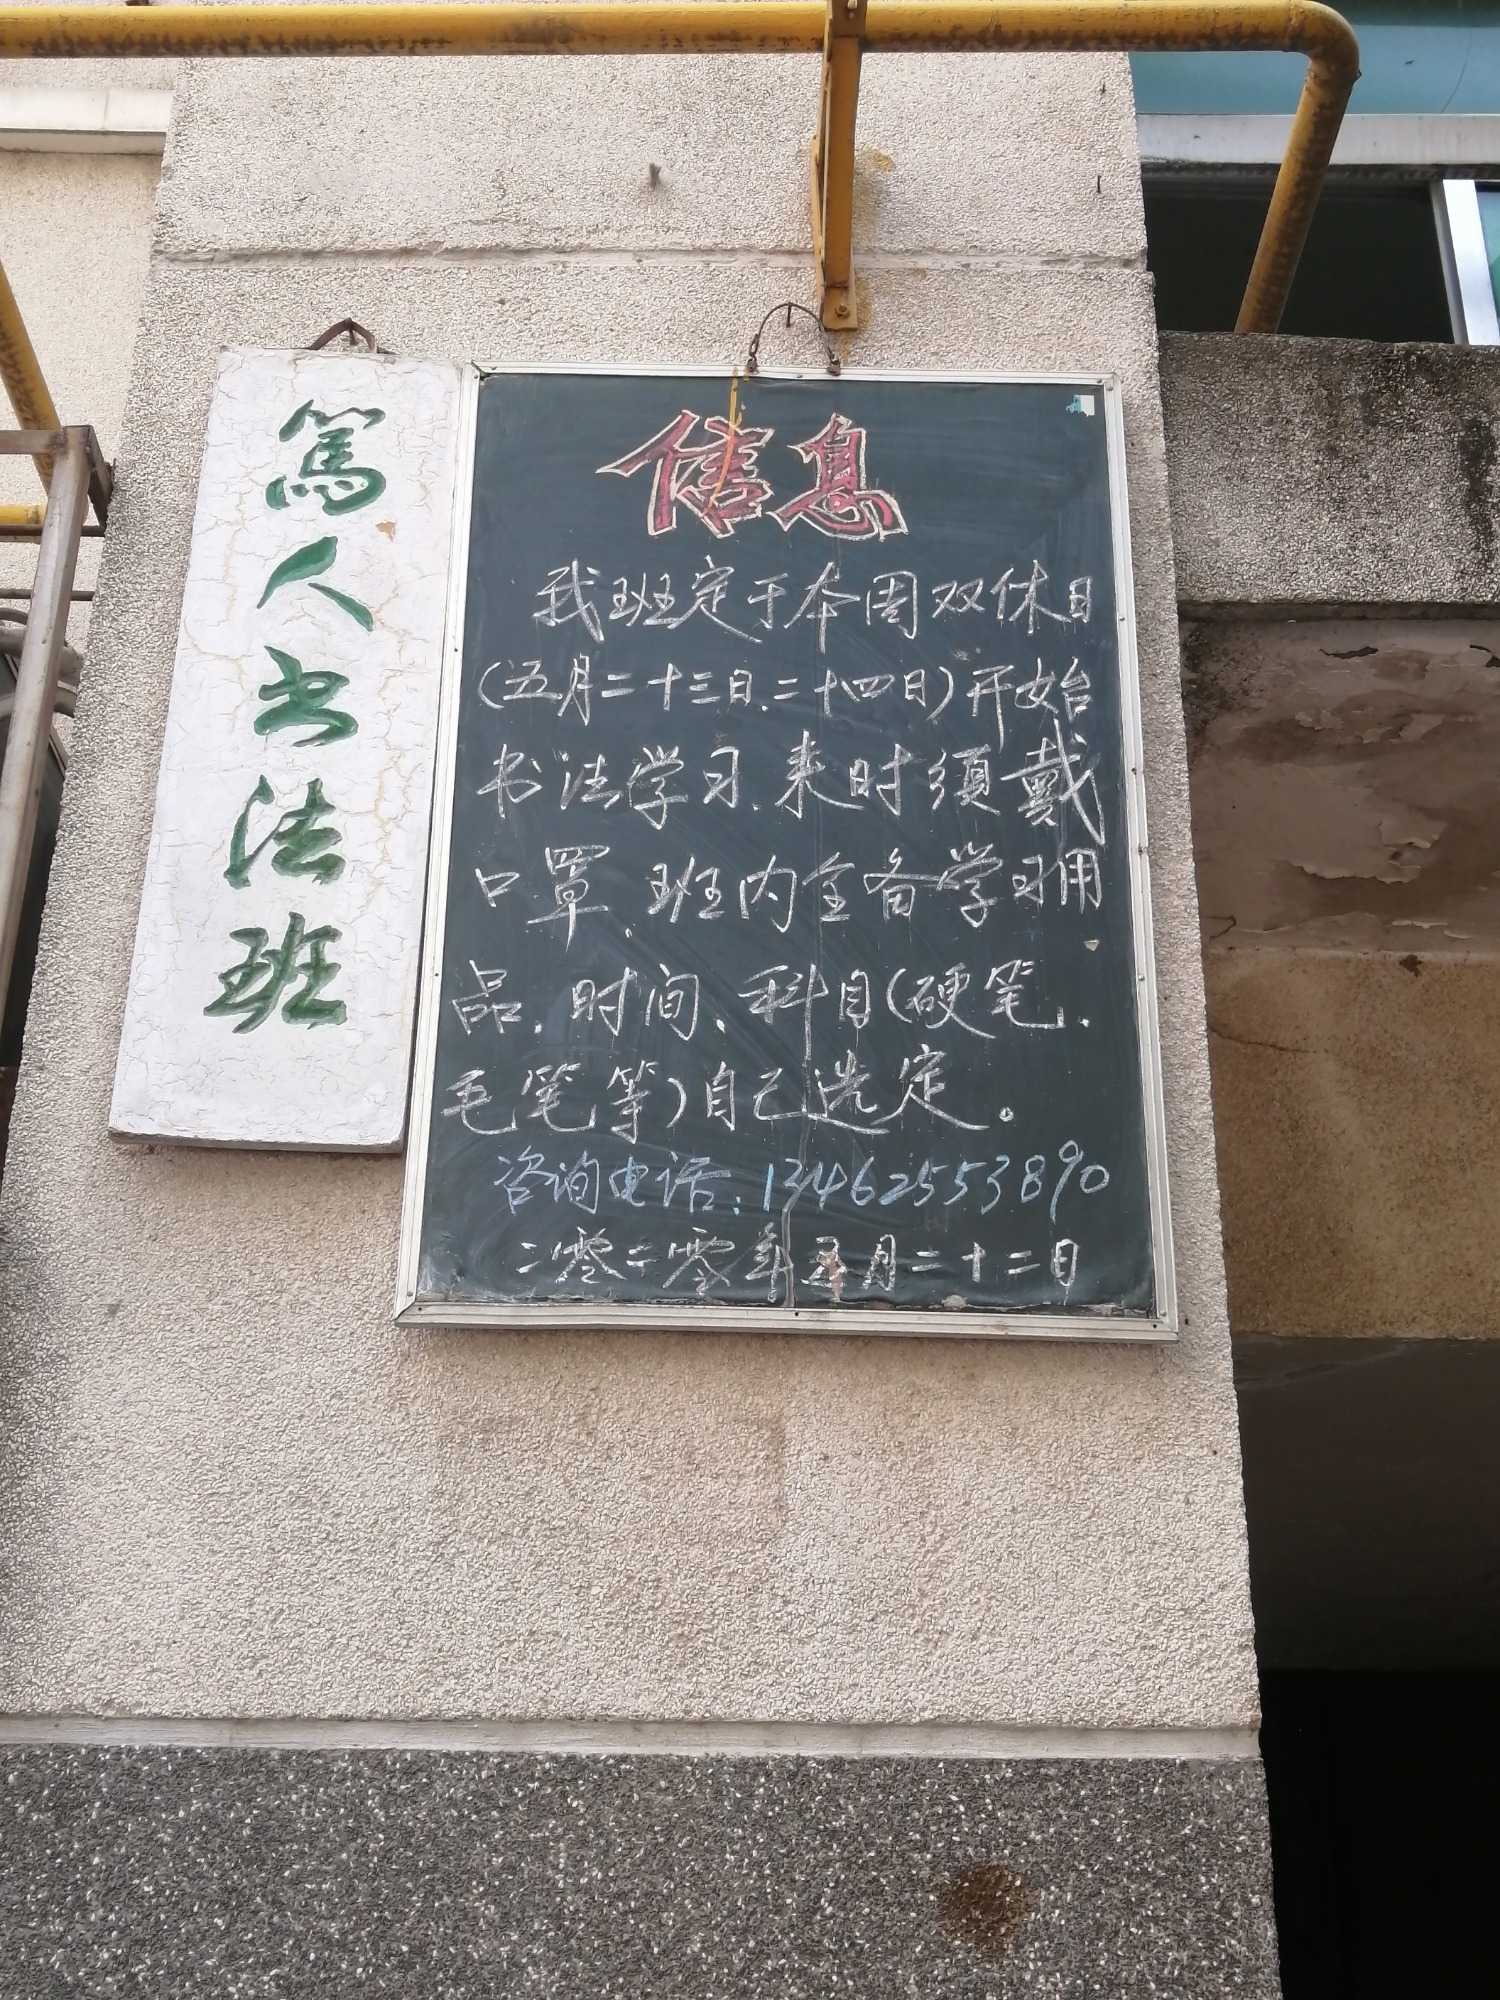 篤人书法班
信息
我班定于本周双休日
(五月二十三日、二十四日)开始
书法学习、来时须戴
口罩、班内全备学习用
品、时间、科目(硬笔、
毛笔等)自己选定。
咨询电话:13462553890
二零二零年五月二十二日